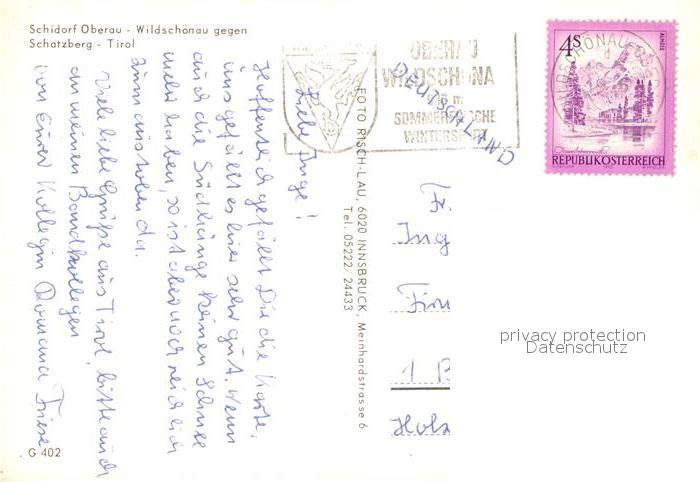 Schidorf Oberau - Wildschönau gegen
Schatzberg - Tirol
Liebe Inge!
Hoffentlich gefällt Dir die Karte,
uns gefällt es hier sehr gut. Wenn
auch die Südhänge keinen Schnee
mehr haben, so ist aber noch reichlich
zum austoben da.
Viele liebe Grüße aus Tirol, bitte auch
an meinen Bandkollegen
von Eurer Kollegin Romana Friese
G 402
FOTO RISCH-LAU, 6020 INNSBRUCK, Meinhardstrasse 6
Tel. 05222/24433
OBERAU
WILDSCHÖNA
SOMMERFRISCHE
WINTERSPORT
DEUTSCHLAND
4S
ALMSEE
REPUBLIK ÖSTERREICH
Fr.
Ing
Firm
1 B
Holz
privacy protection
Datenschutz